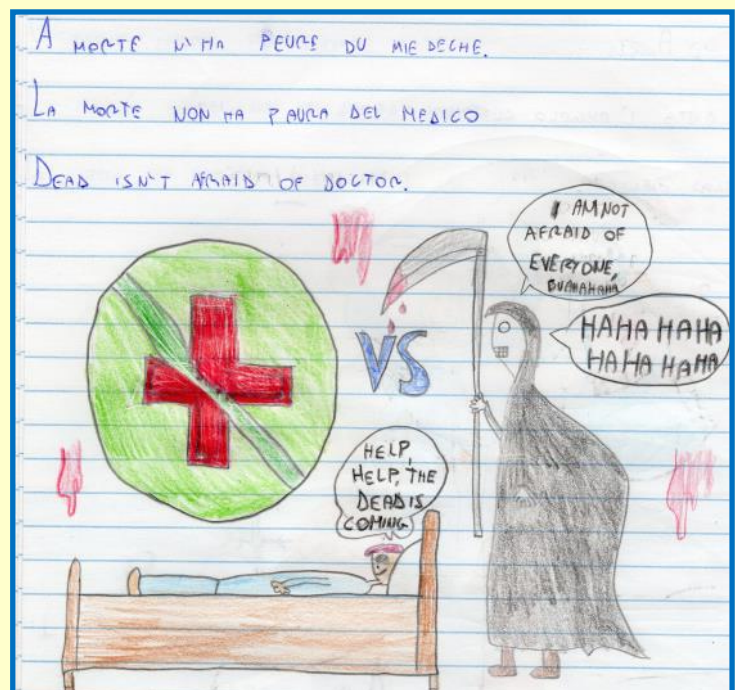 A MORTE N'HA PEURE DU MIEDECHE.
LA MORTE NON HA PAURA DEL MEDICO
DEAD ISN'T AFRAID OF DOCTOR.
I AM NOT
AFRAID OF
EVERYONE,
BUAHAHAHA
HAHA HAHA
HAHA HAHA
VS
HELP,
HELP, THE
DEAD IS
COMING